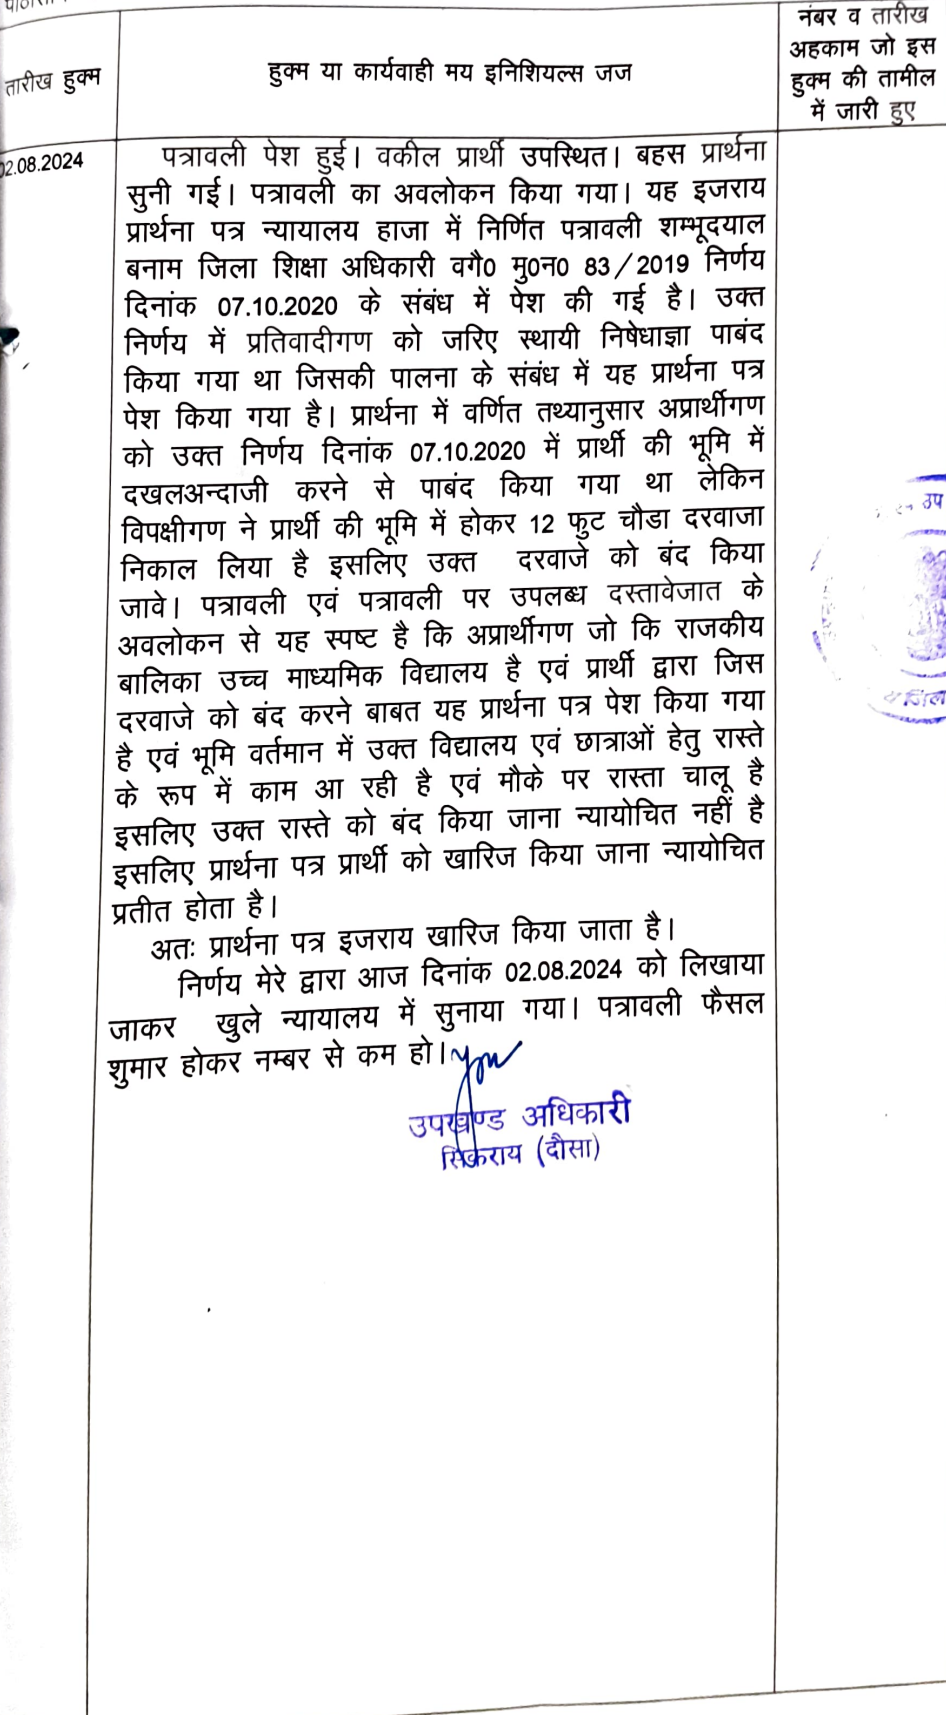 नंबर व तारीख
अहकाम जो इस
हुक्म की तामील
में जारी हुए
तारीख हुक्म
हुक्म या कार्यवाही मय इनिशियल्स जज
02.08.2024
पत्रावली पेश हुई। वकील प्रार्थी उपस्थित। बहस प्रार्थना
सुनी गई। पत्रावली का अवलोकन किया गया। यह इजराय
प्रार्थना पत्र न्यायालय हाजा में निर्णित पत्रावली शम्भूदयाल
बनाम जिला शिक्षा अधिकारी वगै0 मु0न0 83/2019 निर्णय
दिनांक 07.10.2020 के संबंध में पेश की गई है। उक्त
निर्णय में प्रतिवादीगण को जरिए स्थायी निषेधाज्ञा पाबंद
किया गया था जिसकी पालना के संबंध में यह प्रार्थना पत्र
पेश किया गया है। प्रार्थना में वर्णित तथ्यानुसार अप्रार्थीगण
को उक्त निर्णय दिनांक 07.10.2020 में प्रार्थी की भूमि में
दखलअन्दाजी करने से पाबंद किया गया था लेकिन
विपक्षीगण ने प्रार्थी की भूमि में होकर 12 फुट चौडा दरवाजा
निकाल लिया है इसलिए उक्त दरवाजे को बंद किया
जावे। पत्रावली एवं पत्रावली पर उपलब्ध दस्तावेजात के
अवलोकन से यह स्पष्ट है कि अप्रार्थीगण जो कि राजकीय
बालिका उच्च माध्यमिक विद्यालय है एवं प्रार्थी द्वारा जिस
दरवाजे को बंद करने बाबत यह प्रार्थना पत्र पेश किया गया
है एवं भूमि वर्तमान में उक्त विद्यालय एवं छात्राओं हेतु रास्ते
के रूप में काम आ रही है एवं मौके पर रास्ता चालू है
इसलिए उक्त रास्ते को बंद किया जाना न्यायोचित नहीं है
इसलिए प्रार्थना पत्र प्रार्थी को खारिज किया जाना न्यायोचित
प्रतीत होता है।
अतः प्रार्थना पत्र इजराय खारिज किया जाता है।
निर्णय मेरे द्वारा आज दिनांक 02.08.2024 को लिखाया
जाकर खुले न्यायालय में सुनाया गया। पत्रावली फैसल
शुमार होकर नम्बर से कम हो।
उपखण्ड अधिकारी
सिकराय (दौसा)
उप
जिल